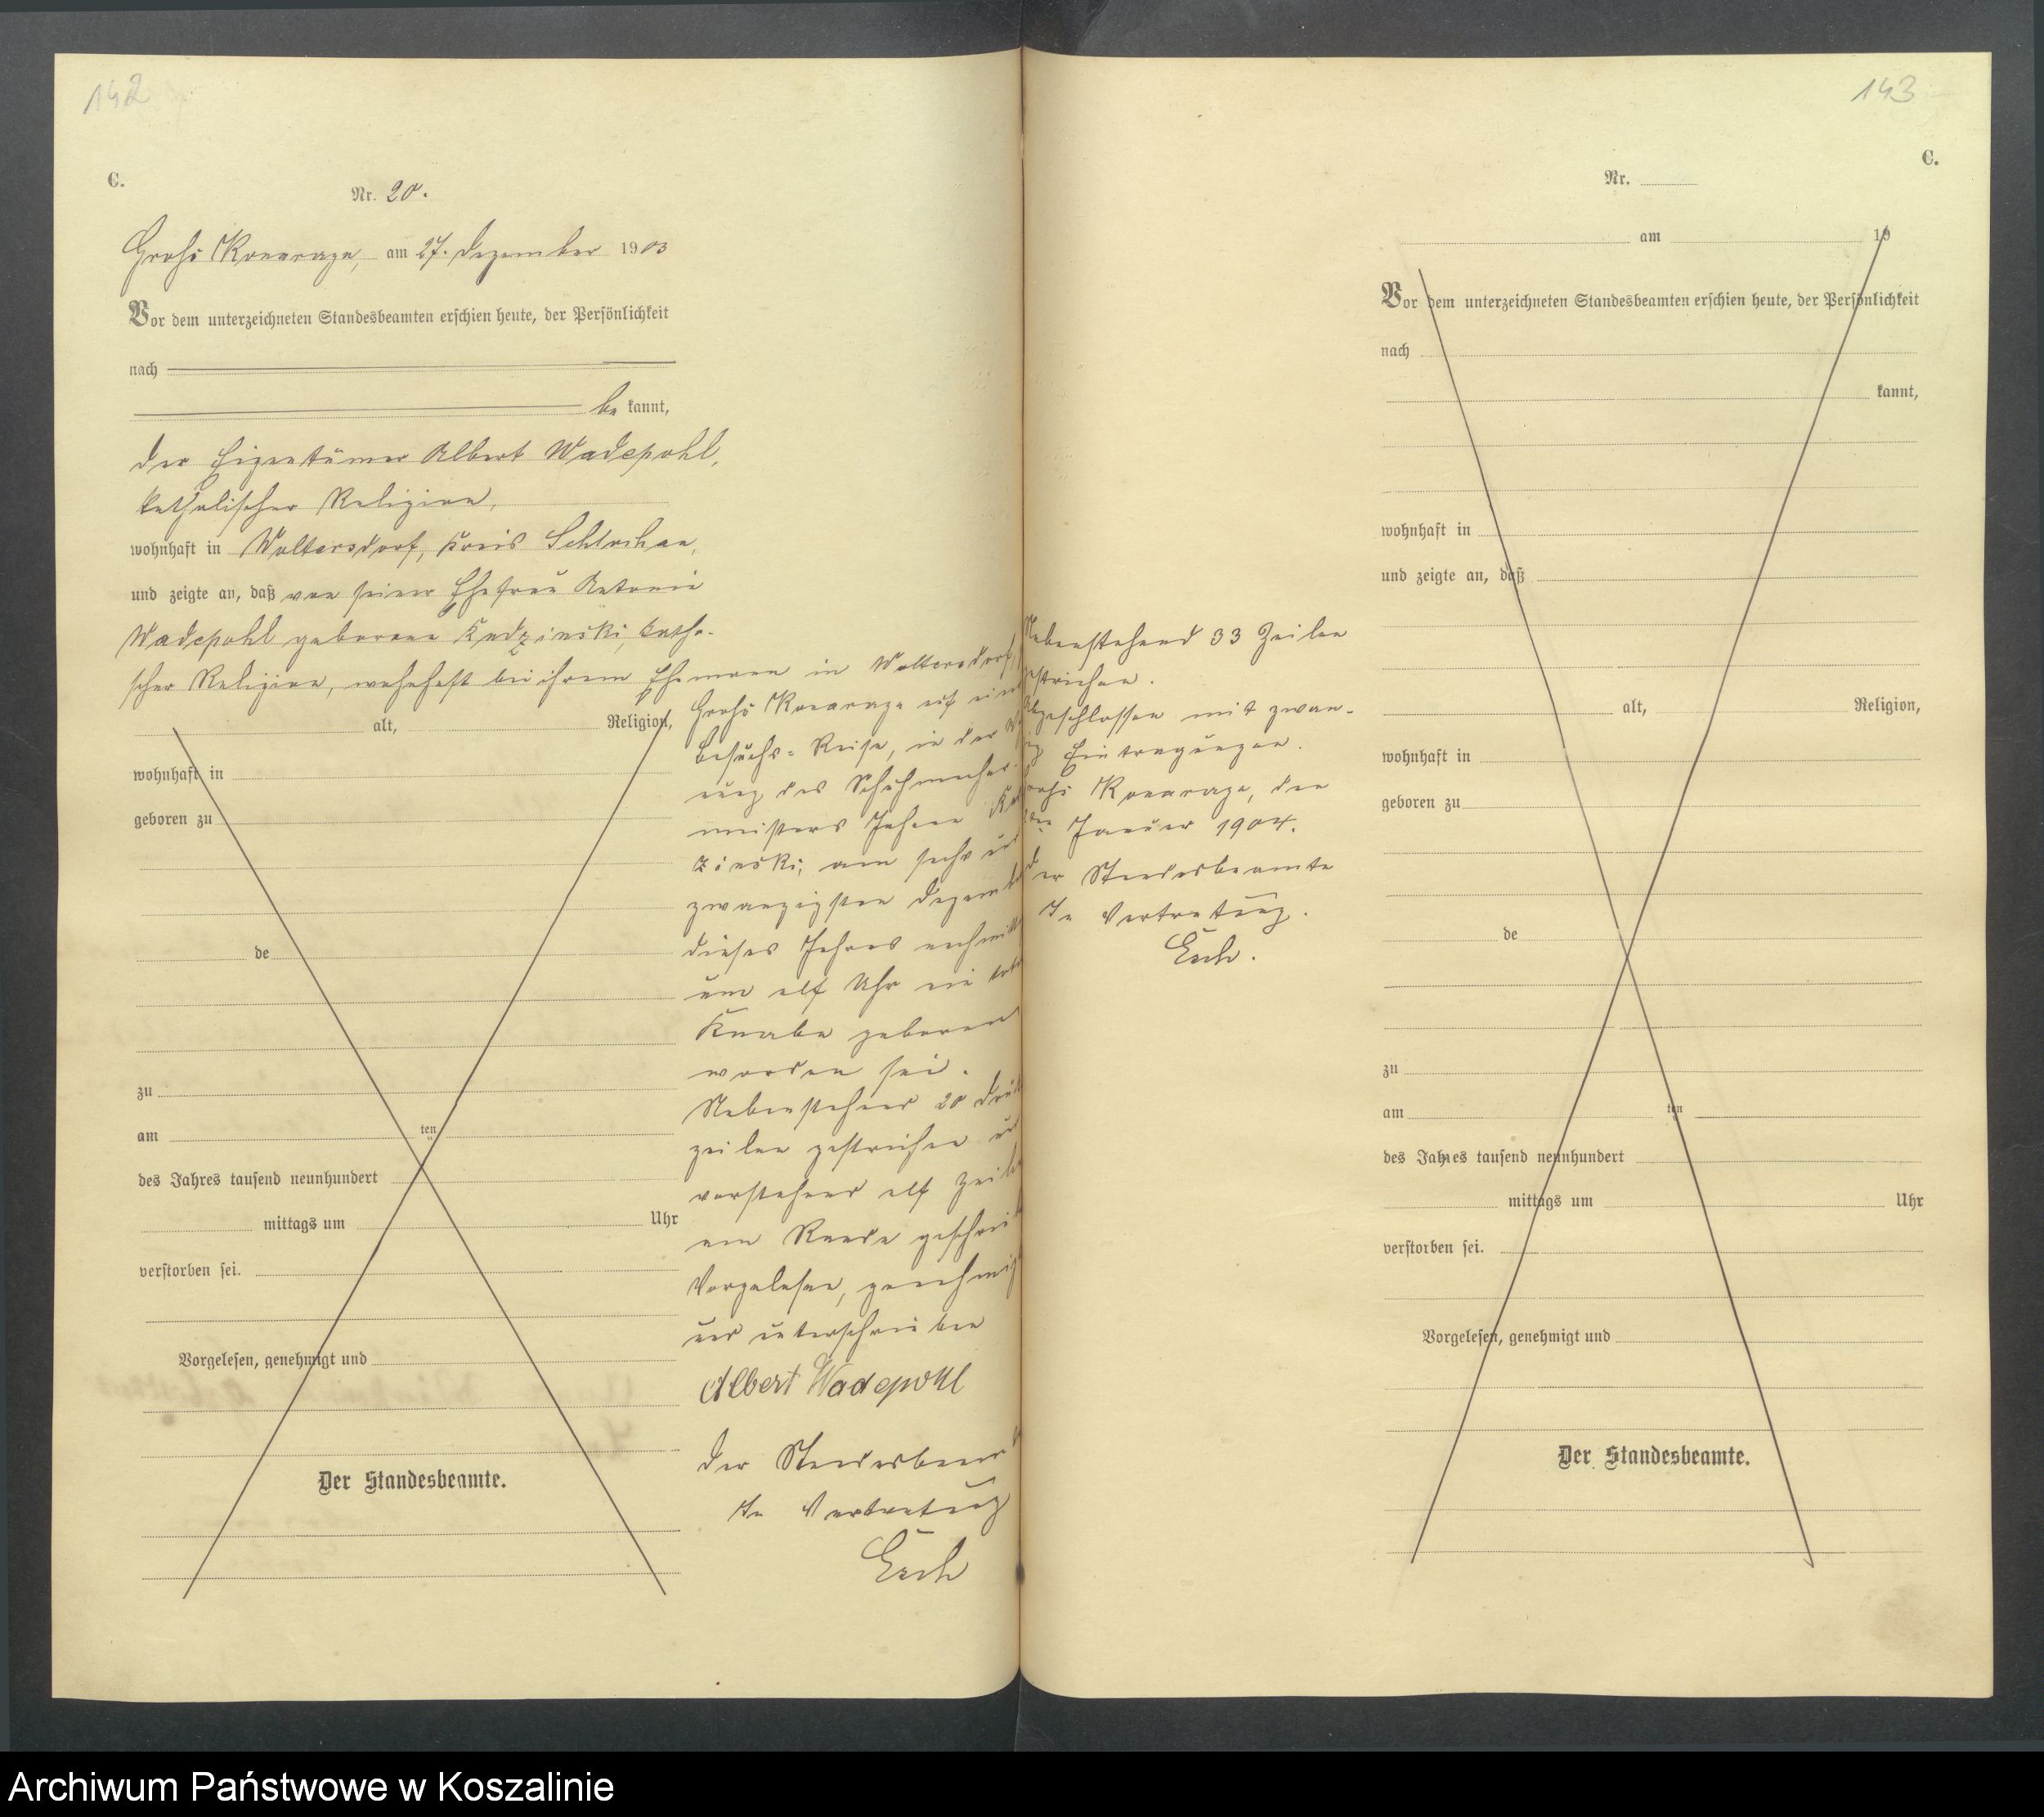 142
C.
Nr. 20.
Groß Konarazyn, am 27. Dezember 1903
Vor dem unterzeichneten Standesbeamten erschien heute, der Persönlichkeit
nach
be kannt,
der Eigentümer Albert Wadepohl,
katholischer Religion,
wohnhaft in Woltersdorf, Kreis Schlochau,
und zeigte an, daß von seiner Ehefrau Antonie
Wadepohl geborene Kudzinski, katho-
scher Religion, wohnhaft bei ihrem Ehemann in Woltersdorf,
alt, Religion,
wohnhaft in
geboren zu
de
zu
am ten
des Jahres tausend neunhundert
mittags um Uhr
verstorben sei.
Vorgelesen, genehmigt und
Der Standesbeamte.
Groß auf
Besuchs-Reise, in der
des Schuhmacher-
meisters Johann
zinski, am sechs und
zwanzigsten Dezember
dieses Jahres
um elf Uhr ein
Knabe geboren
worden sei.
Nebenstehend 20 Druck
zeilen gestrichen
vorstehend elf
am Rande
Vorgelesen, genehmigt
und unterschrieben
Albert Wadepohl
Der
In Vertretung
Esch
143
C.
Nebenstehend 33 Zeilen
gestrichen.
Abgeschlossen mit zwan-
zig Eintragungen.
Groß den
Januar 1904.
Der Standesbeamte
In Vertretung.
Esch.
Nr.
am 19
Vor dem unterzeichneten Standesbeamten erschien heute, der Persönlichkeit
nach
kannt,
wohnhaft in
und zeigte an, daß
alt, Religion,
wohnhaft in
geboren zu
de
zu
am ten
des Jahres tausend neunhundert
mittags um Uhr
verstorben sei.
Vorgelesen, genehmigt und
Der Standesbeamte.
Archiwum Państwowe w Koszalinie